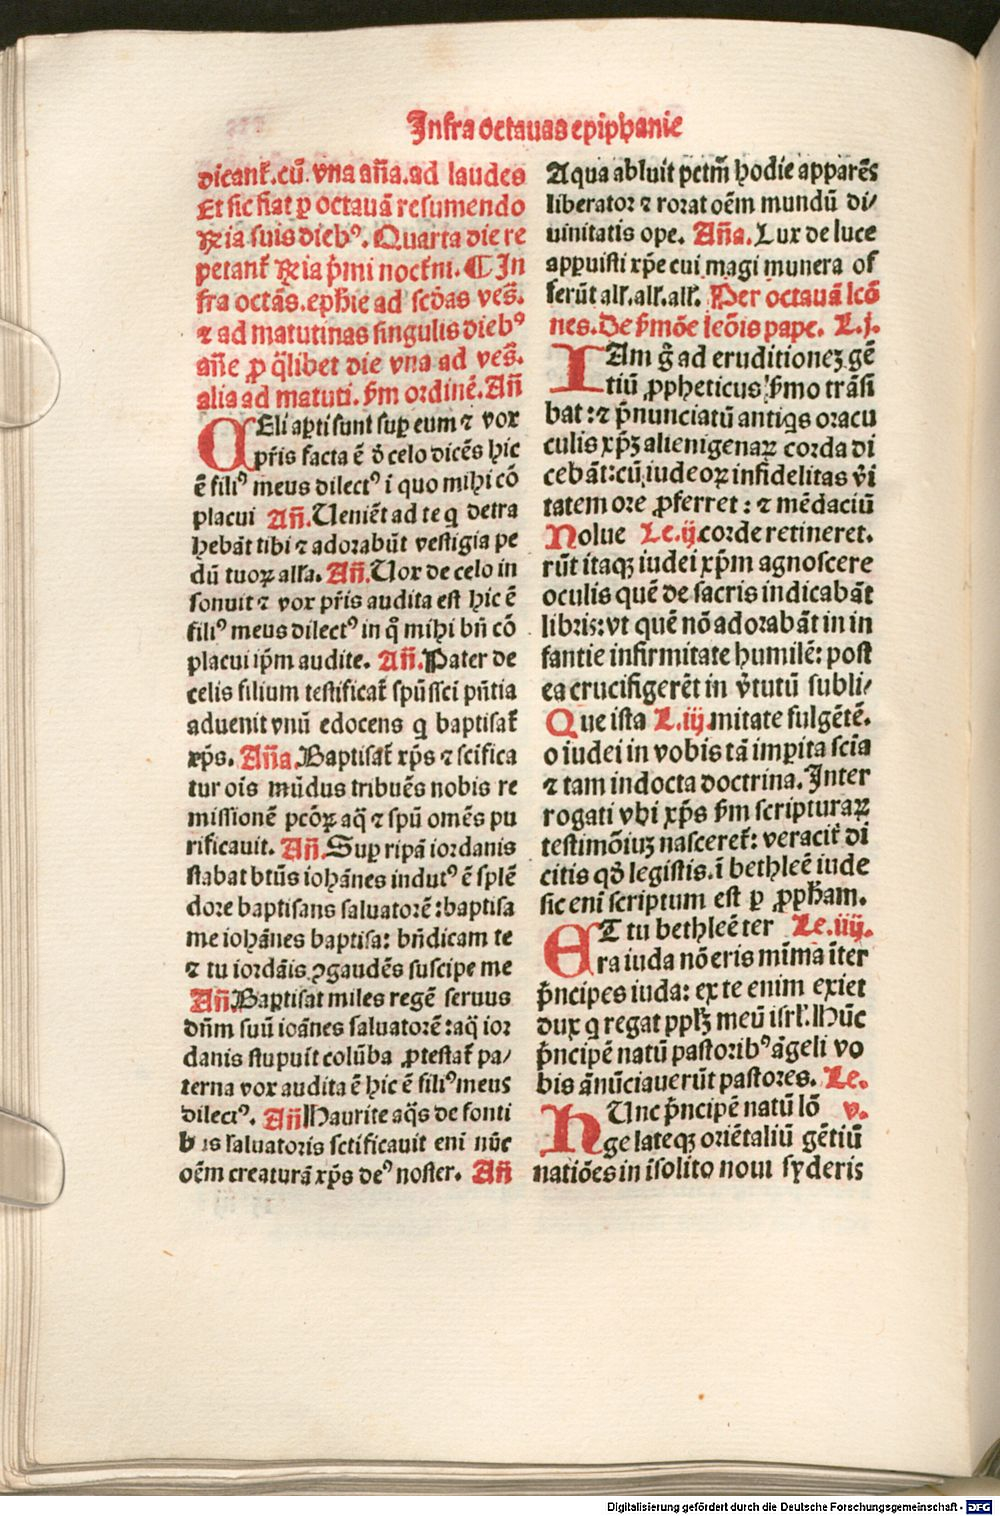 Infra octauas epiphanie
dicant᷑.cū. vna an̄a.ad laudes
Et sic fiat ꝑ octauā resumendo
℞ia suis dieb⁹. Quarta die re
petant᷑ ℞ia p̄mi noct̄ni. ¶ In
fra octās.epħie ad scd̄as ves̄.
⁊ ad matutinas singulis dieb⁹
an̄e ꝓ q̄libet die vna ad ves̄.
alia ad matuti. s̄m ordinē. Añ
CEli aꝑti sunt suꝑ eum ⁊ vox
pr̄is facta ē d̄ celo dicēs hic
ē fili⁹ meus dilect⁹ ī quo mihi cō
placui Añ. Ueniēt ad te q detra
hebāt tibi ⁊ adorabūt vestigia pe
dū tuoꝝ alla. Añ. Uox de celo in
sonuit ⁊ vox pr̄is audita est hic ē
fili⁹ meus dilect⁹ in q̄ mihi bn̄ cō
placui ip̄m audite. Añ. Pater de
celis filium testificat᷑ spūs sc̄i pn̄tia
aduenit vnū edocens q baptisat᷑
xp̄s. An̄a Baptisat᷑ xp̄s ⁊ scifica
tur oīs mūdus tribuēs nobis re
missionē pcōꝝ aq̄ ⁊ spū omēs pu
rificauit. Añ. Suꝑ ripā iordanis
stabat btūs iohānes indut⁹ ē splē
dore baptisans saluatorē: baptisa
me iohānes baptisa: bn̄dicam te
⁊ tu iordāis ꝯgaudēs suscipe me
Añ. Baptisat miles regē seruus
dn̄m suū ioānes saluatorē: aq̄ ior
danis stupuit colūba ꝓtestat᷑ pa/
terna vox audita ē hic ē fili⁹ meus
dilect⁹. Añ Haurite aq̄s de fonti
b is saluatoris sctificauit eni nūc
oēm creaturā xp̄s de⁹ noster. Añ
Aqua abluit petm̄ hodie apparēs
liberator ⁊ rorat oēm mundū di/
uinitatis ope. An̄a. Lux de luce
apparuisti xp̄e cui magi munera of
ferūt all. all. all. Per octauā lcō
nes. De s̄mōe leōis pape. L.j.
IAm ḡ ad eruditionez gē
tiū ꝓpheticus s̄mo trāsi
bat: ⁊ p̄nunciatū antiqs oracu
culis xp̄z alienigenaꝝ corda di
cebāt: cū iudeoꝝ infidelitas v̄i
tatem ore ꝓferret: ⁊ mēdaciū
Nolue Le.ij. corde retineret.
rūt itaqꝫ iudei xp̄m agnoscere
oculis quē de sacris indicabāt
libris: vt quē nō adorabāt in in
fantie infirmitate humilē: post
ea crucifigerēt in v̄tutū subli/
Que ista L.iij. mitate fulgētē.
o iudei in vobis tā imꝑita sciā
⁊ tam indocta doctrina. Inter
rogati vbi xp̄s s̄m scripturaꝝ
testimōiuz nasceret᷑: veracit᷑ di
citis qd̄ legistis. ī bethleē iude
sic eni scriptum est ꝑ ꝓpħam.
ET tu bethleē ter Le.iiij.
ra iuda nō eris mīma īter
p̄ncipes iuda: ex te enim exiet
dux q regat pplꝫ meū isrl̄. Hūc
p̄ncipē natū pastorib⁹ āgeli vo
bis ānūciauerūt pastores. Le.
HUnc p̄ncipē natū lō v.
ge lateqꝫ oriētaliū gētiū
natiōes in īsolito noui syderis
Digitalisierung gefördert durch die Deutsche Forschungsgemeinschaft - DFG